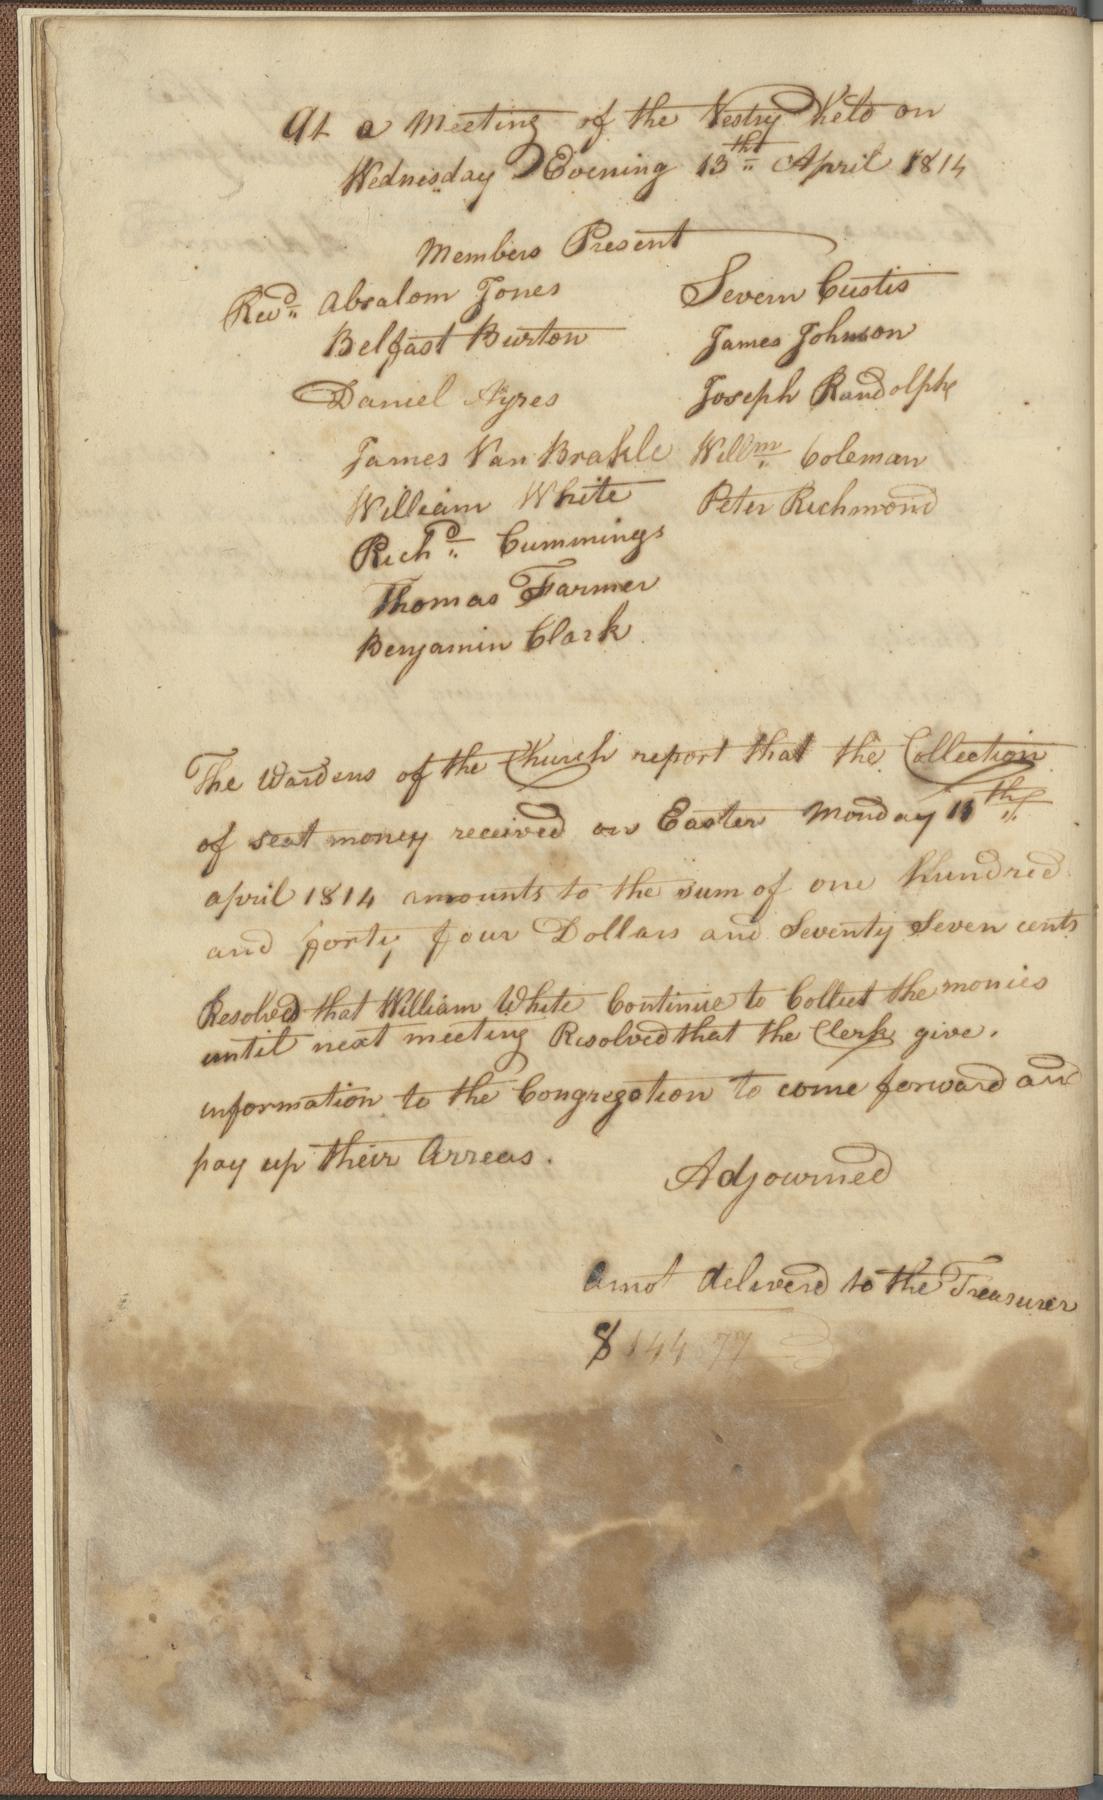 At a Meeting of the Vestry held on
Wednesday Evening 13th April 1814
Members Present
Revd Absalom Jones
Belfast Burton
Daniel Ayres
James Van Brakle
William White
Richd Cummings
Thomas Farmer
Benjamin Clark
Severn Custis
James Johnson
Joseph Randolph
Willm Coleman
Peter Richmond
The Wardens of the Church report that the Collection
of seat money received on Easter Monday 11th
april 1814 amounts to the sum of one hundred
and forty four Dollars and Seventy Seven cents
Resolved that William White Continue to Collect the monies
until next meeting Resolved that the Clerk give.
information to the Congregation to come forward and
pay up their Arreas.
Adjourned
Amot deliverd to the Treasurer
$ 144 77